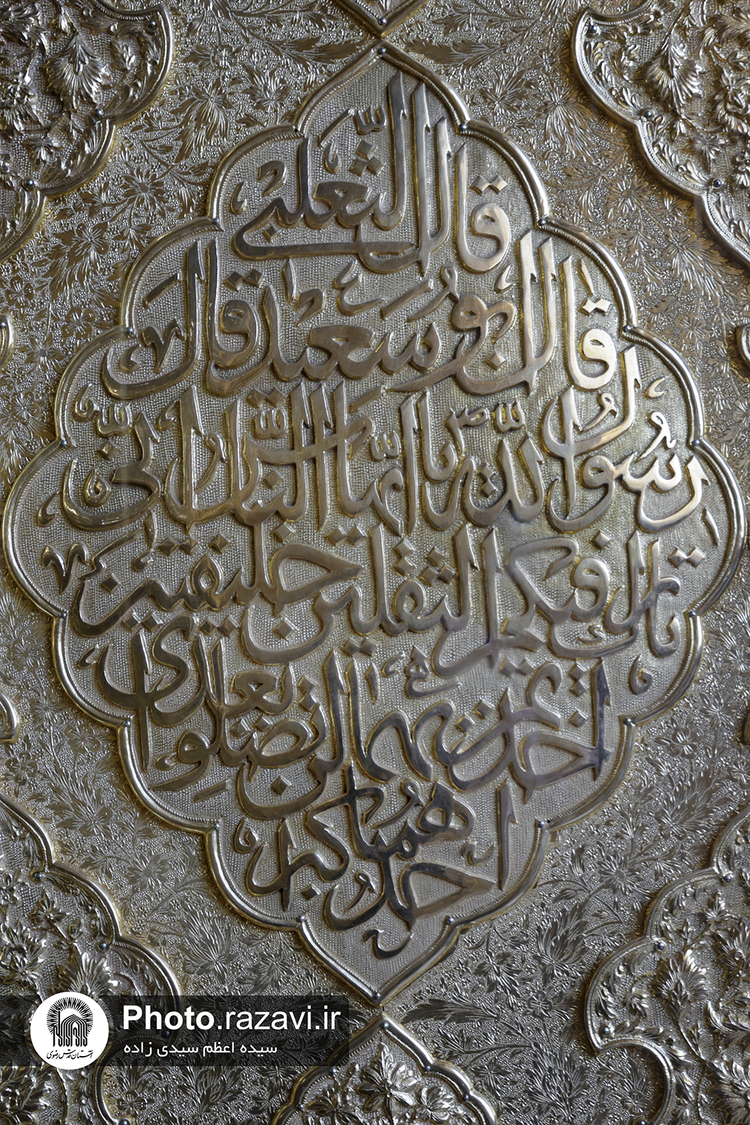 قال الثعلبي
قال ابو سعيد قال
رسول الله ص يا ايها الناس اني
تارك فيكم الثقلين خليفتين
اخذتم بهما لن تضلوا بعدي
احدهما اكبر
Photo.razavi.ir
سیده اعظم سیدی زاده
آستان قدس رضوی